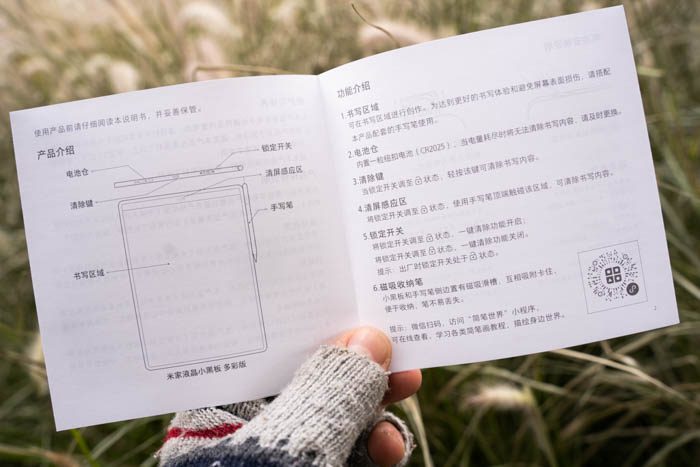 使用产品前请仔细阅读本说明书，并妥善保管。
产品介绍
电池仓
锁定开关
清除键
清屏感应区
手写笔
书写区域
米家液晶小黑板 多彩版
功能介绍
1.书写区域
可在书写区域进行创作。为达到更好的书写体验和避免屏幕表面损伤，请搭配
本产品配套的手写笔使用。
2.电池仓
内置一粒纽扣电池（CR2025），当电量耗尽时将无法清除书写内容，请及时更换。
3.清除键
当锁定开关调至状态，轻按该键可清除书写内容。
4.清屏感应区
将锁定开关调至状态，使用手写笔顶端触碰该区域，可清除书写内容。
5.锁定开关
将锁定开关调至状态，一键清除功能开启；
将锁定开关调至状态，一键清除功能关闭。
提示：出厂时锁定开关处于状态。
6.磁吸收纳笔
小黑板和手写笔侧边置有磁吸滑槽，互相吸附卡住，
便于收纳，笔不易丢失。
提示：微信扫码，访问“简笔世界”小程序，
可在线查看，学习各类简笔画教程，描绘身边世界。
2